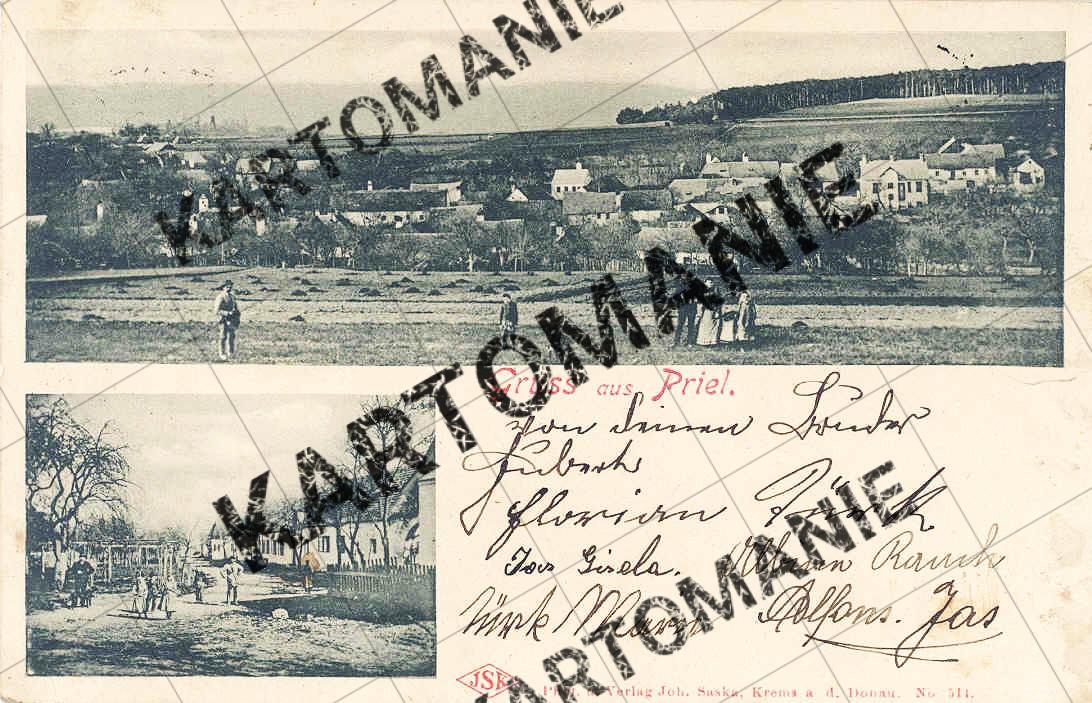 KARTOMANIE
KARTOMANIE
KARTOMANIE
KARTOMANIE
Gruss aus Priel.
von deinen Bruder
Hubert
Florian Türk
Jas Gisela. Rauch
Türk Alfons. Jas
JSK
Phot. u. Verlag Joh. Saska, Krems a. d. Donau. No 511.